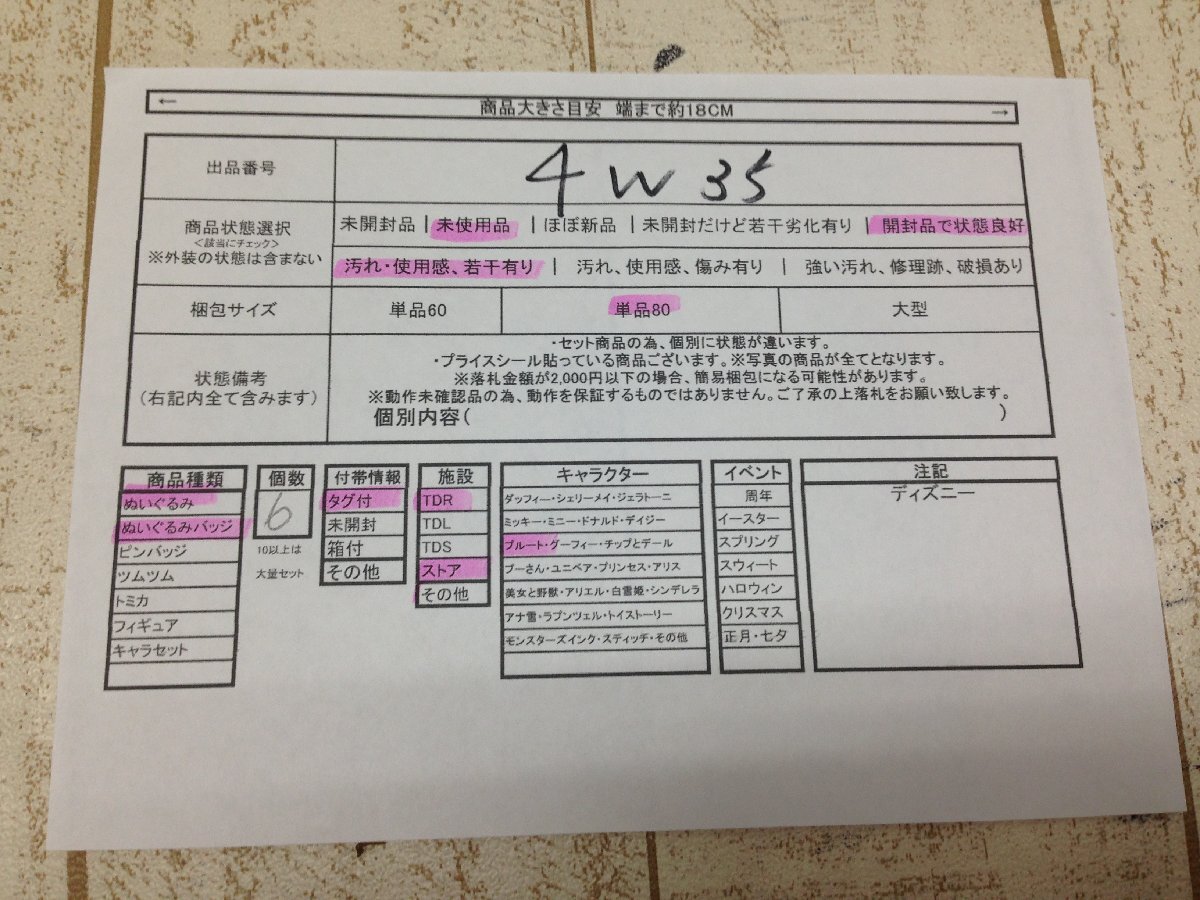 ← 商品大きさ目安 端まで約18CM →
出品番号 4W35
商品状態選択
<該当にチェック>
※外装の状態は含まない
未開封品 | 未使用品 | ほぼ新品 | 未開封だけど若干劣化有り | 開封品で状態良好
汚れ・使用感、若干有り | 汚れ、使用感、傷み有り | 強い汚れ、修理跡、破損あり
梱包サイズ 単品60 単品80 大型
状態備考
(右記内全て含みます)
・セット商品の為、個別に状態が違います。
・プライスシール貼っている商品ございます。※写真の商品が全てとなります。
※落札金額が2,000円以下の場合、簡易梱包になる可能性があります。
※動作未確認品の為、動作を保証するものではありません。ご了承の上落札をお願い致します。
個別内容( )
商品種類
ぬいぐるみ
ぬいぐるみバッジ
ピンバッジ
ツムツム
トミカ
フィギュア
キャラセット
個数
6
10以上は
大量セット
付帯情報
タグ付
未開封
箱付
その他
施設
TDR
TDL
TDS
ストア
その他
キャラクター
ダッフィー・シェリーメイ・ジェラトーニ
ミッキー・ミニー・ドナルド・デイジー
プルート・グーフィー・チップとデール
プーさん・ユニベア・プリンセス・アリス
美女と野獣・アリエル・白雪姫・シンデレラ
アナ雪・ラプンツェル・トイストーリー
モンスターズインク・スティッチ・その他
イベント
周年
イースター
スプリング
スウィート
ハロウィン
クリスマス
正月・七夕
注記
ディズニー